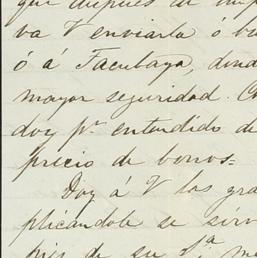 que despues de
va V enviarla ó
ó á Tacubaya, dond
mayor seguridad.
doy pr. entendido de
precio de bonos=
Doy á V las gra
plicandole se sirv
de su